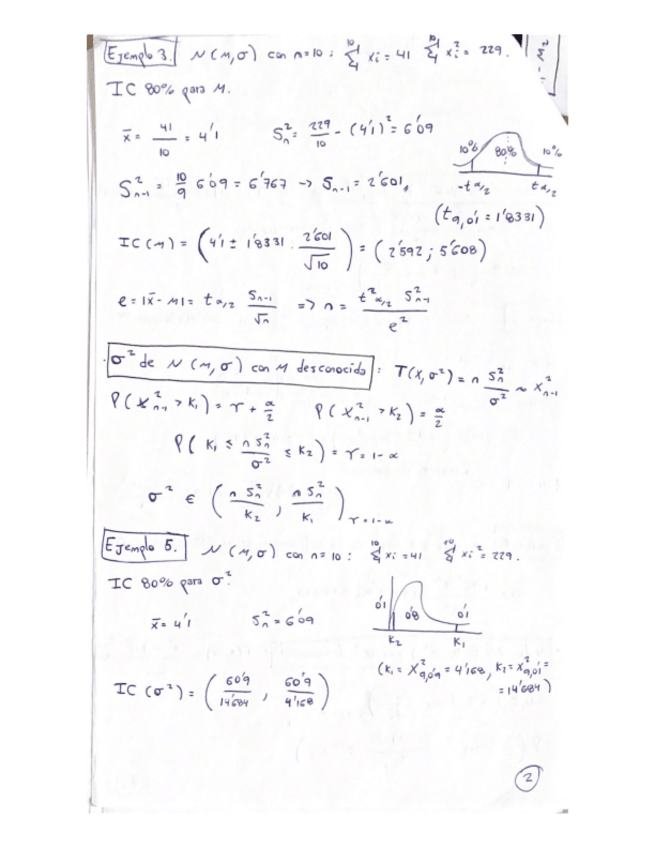 Ejemplo 3. N(M,σ) con n=10 : Σ₁¹⁰ xi = 41 Σ₁¹⁰ xi² = 229.
IC 80% para M.
x̄ = 41/10 = 4'1 Sn² = 229/10 - (4'1)² = 6'09
10% 80% 10%
-tα/2 tα/2
S²n-1 = 10/9 6'09 = 6'767 → Sn-1 = 2'601
(t9,0'1 = 1'8331)
IC(M) = (4'1 ± 1'8331 · 2'601/√10) = (2'592 ; 5'608)
e = |x̄ - M| = tα/2 Sn-1/√n => n = t²α/2 S²n-1 / e²
σ² de N(M,σ) con M desconocido : T(X,σ²) = n Sn²/σ² ~ X²n-1
P(X²n-1 > K1) = r + α/2 P(X²n-1 > K2) = α/2
P(K1 ≤ n Sn²/σ² ≤ K2) = r = 1-α
σ² ∈ (n Sn²/K2 , n Sn²/K1) r=1-α
Ejemplo 5. N(M,σ) con n=10 : Σ₁¹⁰ xi = 41 Σ₁¹⁰ xi² = 229.
IC 80% para σ².
0'1 0'8 0'1
K2 K1
x̄ = 4'1 Sn² = 6'09
(K1 = X²9,0'9 = 4'168, K2 = X²9,0'1 =
= 14'684)
IC(σ²) = (60'9/14'684 , 60'9/4'168)
2